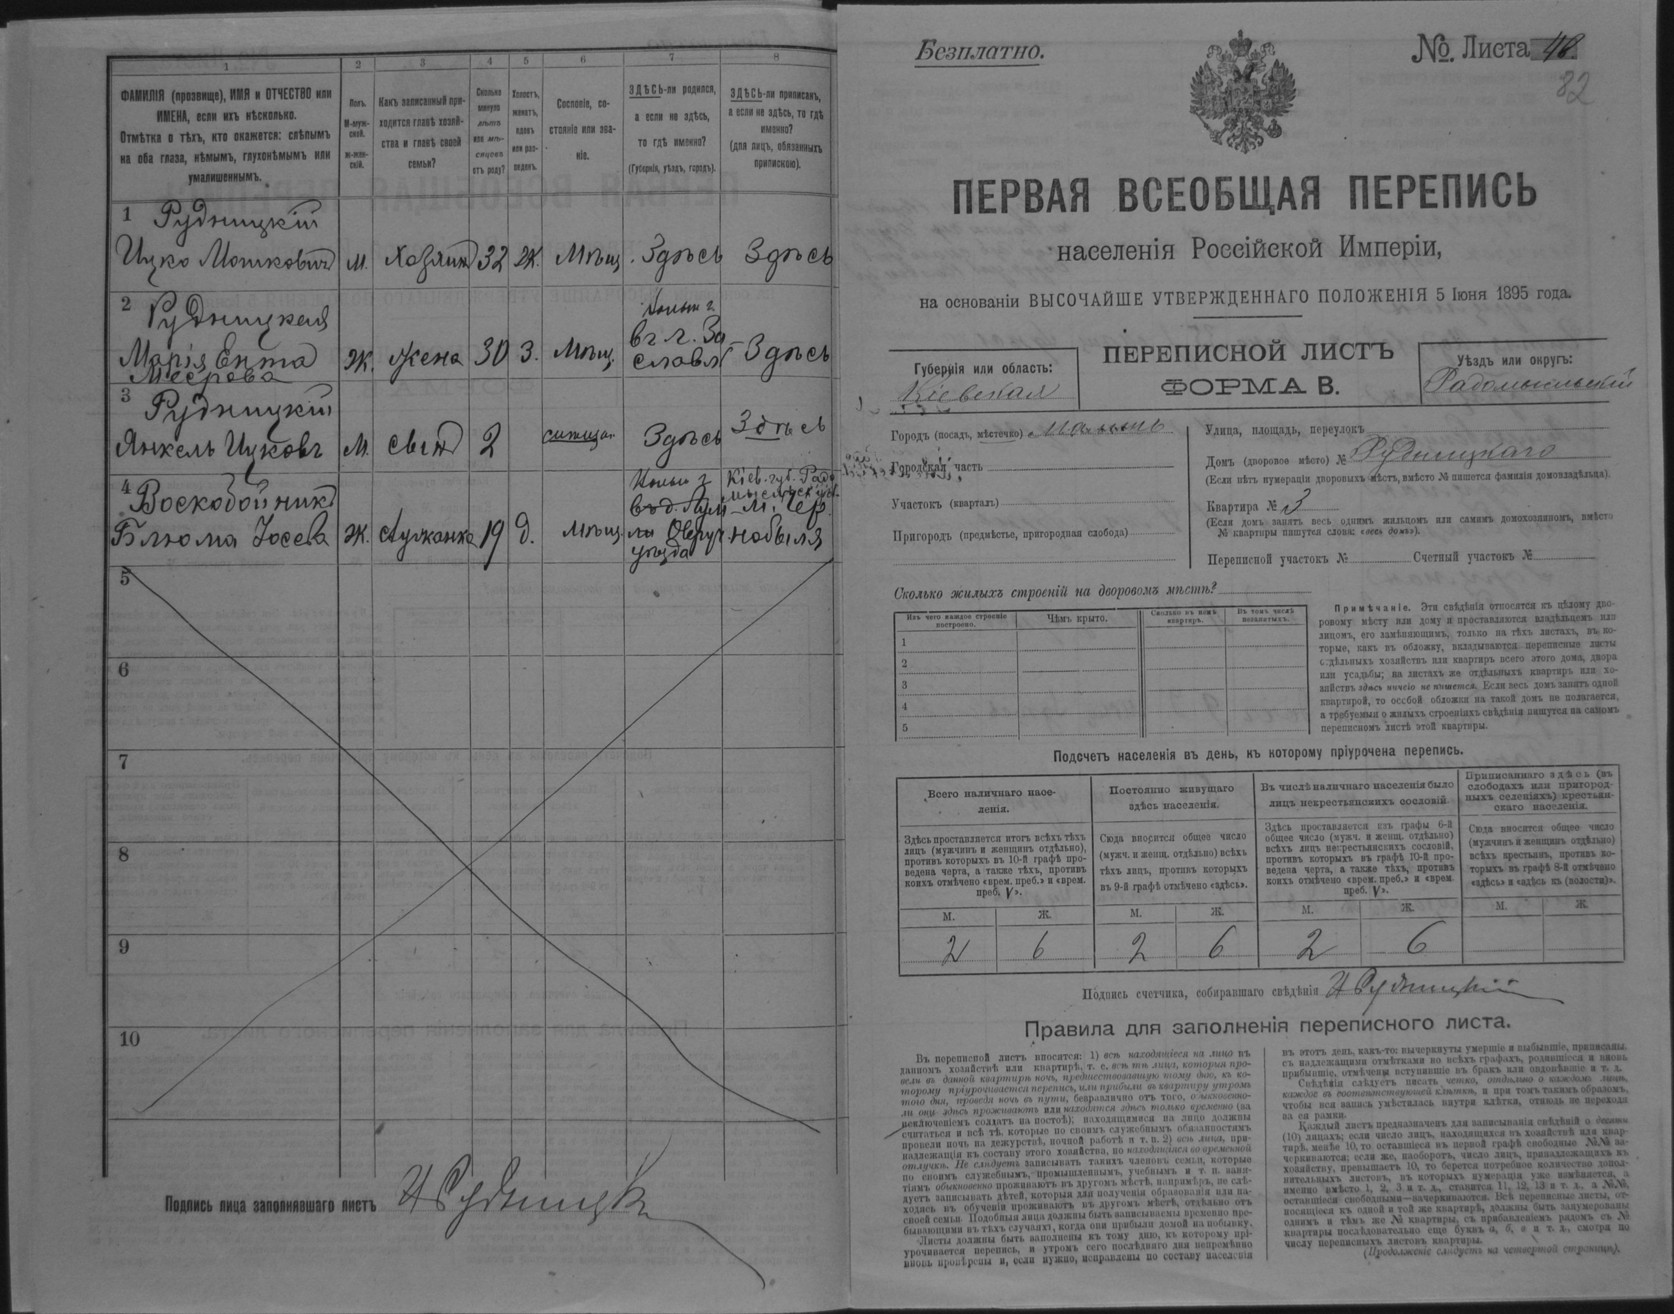 1
2
3
4
5
6
7
8
ФАМИЛІЯ (прозвище), ИМЯ и ОТЧЕСТВО или
ИМЕНА, если ихъ нѣсколько.
Отмѣтка о тѣхъ, кто окажется: слѣпымъ
на оба глаза, нѣмымъ, глухонѣмымъ или
умалишеннымъ.
Полъ.
М-муж-
ской.
Ж-жен-
скій.
Какъ записанный при-
ходится главѣ хозяй-
ства и главѣ своей
семьи?
Сколько
минуло
лѣтъ
или мѣ-
сяцевъ
отъ роду?
Холостъ,
женатъ,
вдовъ
или раз-
веденъ.
Сословіе, со-
стояніе или зва-
ніе.
ЗДѢСЬ-ли родился,
а если не здѣсь,
то гдѣ именно?
(Губернія, уѣздъ, городъ).
ЗДѢСЬ-ли приписанъ,
а если не здѣсь, то гдѣ
именно?
(для лицъ, обязанныхъ
припискою).
1 Рудницкій
Ицко Мошковичъ м. Хозяинъ 32 Ж. Мѣщ. Здѣсь Здѣсь
2 Рудницкая
Марія Ента ж. жена 30 З. Мѣщ. въ г. За
славлѣ Здѣсь
Меерова
3 Рудницкій
Янкель Ицковъ м. сынъ 2 Здѣсь Здѣсь
4 Воскобойникъ
Блюма Іосева ж. служанка 19 д. мѣщ. Овруч
уѣзда
Кіев. губ. Радо
м. Чер
нобыля
5
6
7
8
9
10
Подпись лица заполнявшаго листъ И Рудницк
Безплатно.
№ Листа 48
82
ПЕРВАЯ ВСЕОБЩАЯ ПЕРЕПИСЬ
населенія Россійской Имперіи,
на основаніи ВЫСОЧАЙШЕ УТВЕРЖДЕННАГО ПОЛОЖЕНІЯ 5 Іюня 1895 года.
Губернія или область:
Кіевская
ПЕРЕПИСНОЙ ЛИСТЪ
ФОРМА В.
Уѣздъ или округъ:
Радомысльскій
Городъ (посадъ, мѣстечко) Малинъ
Городская часть
Участокъ (кварталъ)
Пригородъ (предмѣстье, пригородная слобода)
Улица, площадь, переулокъ
Домъ (дворовое мѣсто) № Рудницкаго
(Если нѣтъ нумераціи дворовыхъ мѣстъ, вмѣсто № пишется фамилія домовладѣльца).
Квартира № 3
(Если домъ занятъ весь однимъ жильцомъ или самимъ домохозяиномъ, вмѣсто
№ квартиры пишутся слова: «весь домъ»).
Переписной участокъ № Счетный участокъ №
Сколько жилыхъ строеній на дворовомъ мѣстѣ?
Изъ чего каждое строеніе
построено.
Чѣмъ крыто.
Сколько въ немъ
квартиръ.
Въ томъ числѣ
незанятыхъ.
1
2
3
4
5
Примѣчаніе. Эти свѣдѣнія относятся къ цѣлому дво-
ровому мѣсту или дому и проставляются владѣльцемъ или
лицомъ, его замѣняющимъ, только на тѣхъ листахъ, въ ко-
торые, какъ въ обложку, вкладываются переписные листы
отдѣльныхъ хозяйствъ или квартиръ всего этого дома, двора
или усадьбы; на листахъ же отдѣльныхъ квартиръ или хо-
зяйствъ здѣсь ничего не пишется. Если весь домъ занятъ одной
квартирой, то особой обложки на такой домъ не полагается,
а требуемыя о жилыхъ строеніяхъ свѣдѣнія пишутся на самомъ
переписномъ листѣ этой квартиры.
Подсчетъ населенія въ день, къ которому пріурочена перепись.
Всего наличнаго насе-
ленія.
Постоянно живущаго
здѣсь населенія.
Въ числѣ наличнаго населенія было
лицъ некрестьянскихъ сословій.
Приписаннаго здѣсь (въ
слободахъ или пригород-
ныхъ селеніяхъ) крестьян-
скаго населенія.
Здѣсь проставляется итогъ всѣхъ тѣхъ
лицъ (мужчинъ и женщинъ отдѣльно),
противъ которыхъ въ 10-й графѣ про-
ведена черта, а также тѣхъ, противъ
коихъ отмѣчено «врем. преб.» и «врем.
преб. V».
Сюда вносится общее число
(мужч. и женщ. отдѣльно) всѣхъ
тѣхъ лицъ, противъ которыхъ
въ 9-й графѣ отмѣчено «здѣсь».
Здѣсь проставляется изъ графы 6-й
общее число (мужч. и женщ. отдѣльно)
всѣхъ лицъ некрестьянскихъ сословій,
противъ которыхъ въ графѣ 10-й про-
ведена черта, а также тѣхъ, противъ
коихъ отмѣчено «врем. преб.» и «врем.
преб. V».
Сюда вносится общее число
(мужчинъ и женщинъ отдѣльно)
всѣхъ крестьянъ, противъ ко-
торыхъ въ графѣ 8-й отмѣчено
«здѣсь» и «здѣсь къ (волости)».
М. Ж. М. Ж. М. Ж. М. Ж.
2 6 2 6 2 6
Подпись счетчика, собиравшаго свѣдѣнія И Рудницкій
Правила для заполненія переписного листа.
Въ переписной листъ вносятся: 1) всѣ находящіеся на лицо въ
данномъ хозяйствѣ или квартирѣ, т. е. всѣ тѣ лица, которыя про-
вели въ данной квартирѣ ночь, предшествовавшую тому дню, къ ко-
торому пріурочивается перепись, или прибыли въ квартиру утромъ
того дня, проведя ночь въ пути, безразлично отъ того, обыкновенно-
ли они здѣсь проживаютъ или находятся здѣсь только временно (за
исключеніемъ солдатъ на постоѣ); находящимися на лицо должны
считаться и всѣ тѣ, которые по своимъ служебнымъ обязанностямъ
провели ночь на дежурствѣ, ночной работѣ и т. п. 2) всѣ лица, при-
надлежащія къ составу этого хозяйства, но находящіяся во временной
отлучкѣ. Не слѣдуетъ записывать такихъ членовъ семьи, которые
по своимъ служебнымъ, промышленнымъ, учебнымъ и т. п. заня-
тіямъ обыкновенно проживаютъ въ другомъ мѣстѣ, напримѣръ, не слѣ-
дуетъ записывать дѣтей, которыя для полученія образованія или на-
ходясь въ обученіи проживаютъ въ другомъ мѣстѣ, отдѣльно отъ
своей семьи. Подобныя лица должны быть записываемы временно пре-
бывающими въ тѣхъ случаяхъ, когда они прибыли домой на побывку.
Листы должны быть заполнены къ тому дню, къ которому прі-
урочивается перепись, и утромъ сего послѣдняго дня непремѣнно
вновь провѣрены и, если нужно, исправлены по составу населенія
въ этотъ день, какъ-то: вычеркнуты умершіе и выбывшіе, приписаны,
съ надлежащими отмѣтками во всѣхъ графахъ, родившіеся и вновь
прибывшіе, отмѣчены вступившіе въ бракъ или овдовѣвшіе и т. д.
Свѣдѣнія слѣдуетъ писать четко, отдѣльно о каждомъ лицѣ,
каждое въ соотвѣтствующей клѣткѣ, и при томъ такимъ образомъ,
чтобы вся запись умѣстилась внутри клѣтки, отнюдь не переходя
за ея рамки.
Каждый листъ предназначенъ для записыванія свѣдѣній о десяти
(10) лицахъ; если число лицъ, находящихся въ хозяйствѣ или квар-
тирѣ, менѣе 10, то оставшіеся въ первой графѣ свободные №№ за-
черкиваются; если же, наоборотъ, число лицъ, принадлежащихъ къ
хозяйству, превышаетъ 10, то берется потребное количество допол-
нительныхъ листовъ, въ которыхъ нумерація уже измѣняется, а
именно вмѣсто 1, 2, 3 и т. д., ставится 11, 12, 13 и т. д., а №№,
оставшіеся свободными—зачеркиваются. Всѣ переписные листы, от-
носящіеся къ одной и той же квартирѣ, должны быть занумерованы
однимъ и тѣмъ же № квартиры, съ прибавленіемъ рядомъ съ №
квартиры послѣдовательно еще буквъ а, б, в и т. д., смотря по
числу переписныхъ листовъ квартиры.
(Продолженіе слѣдуетъ на четвертой страницѣ).